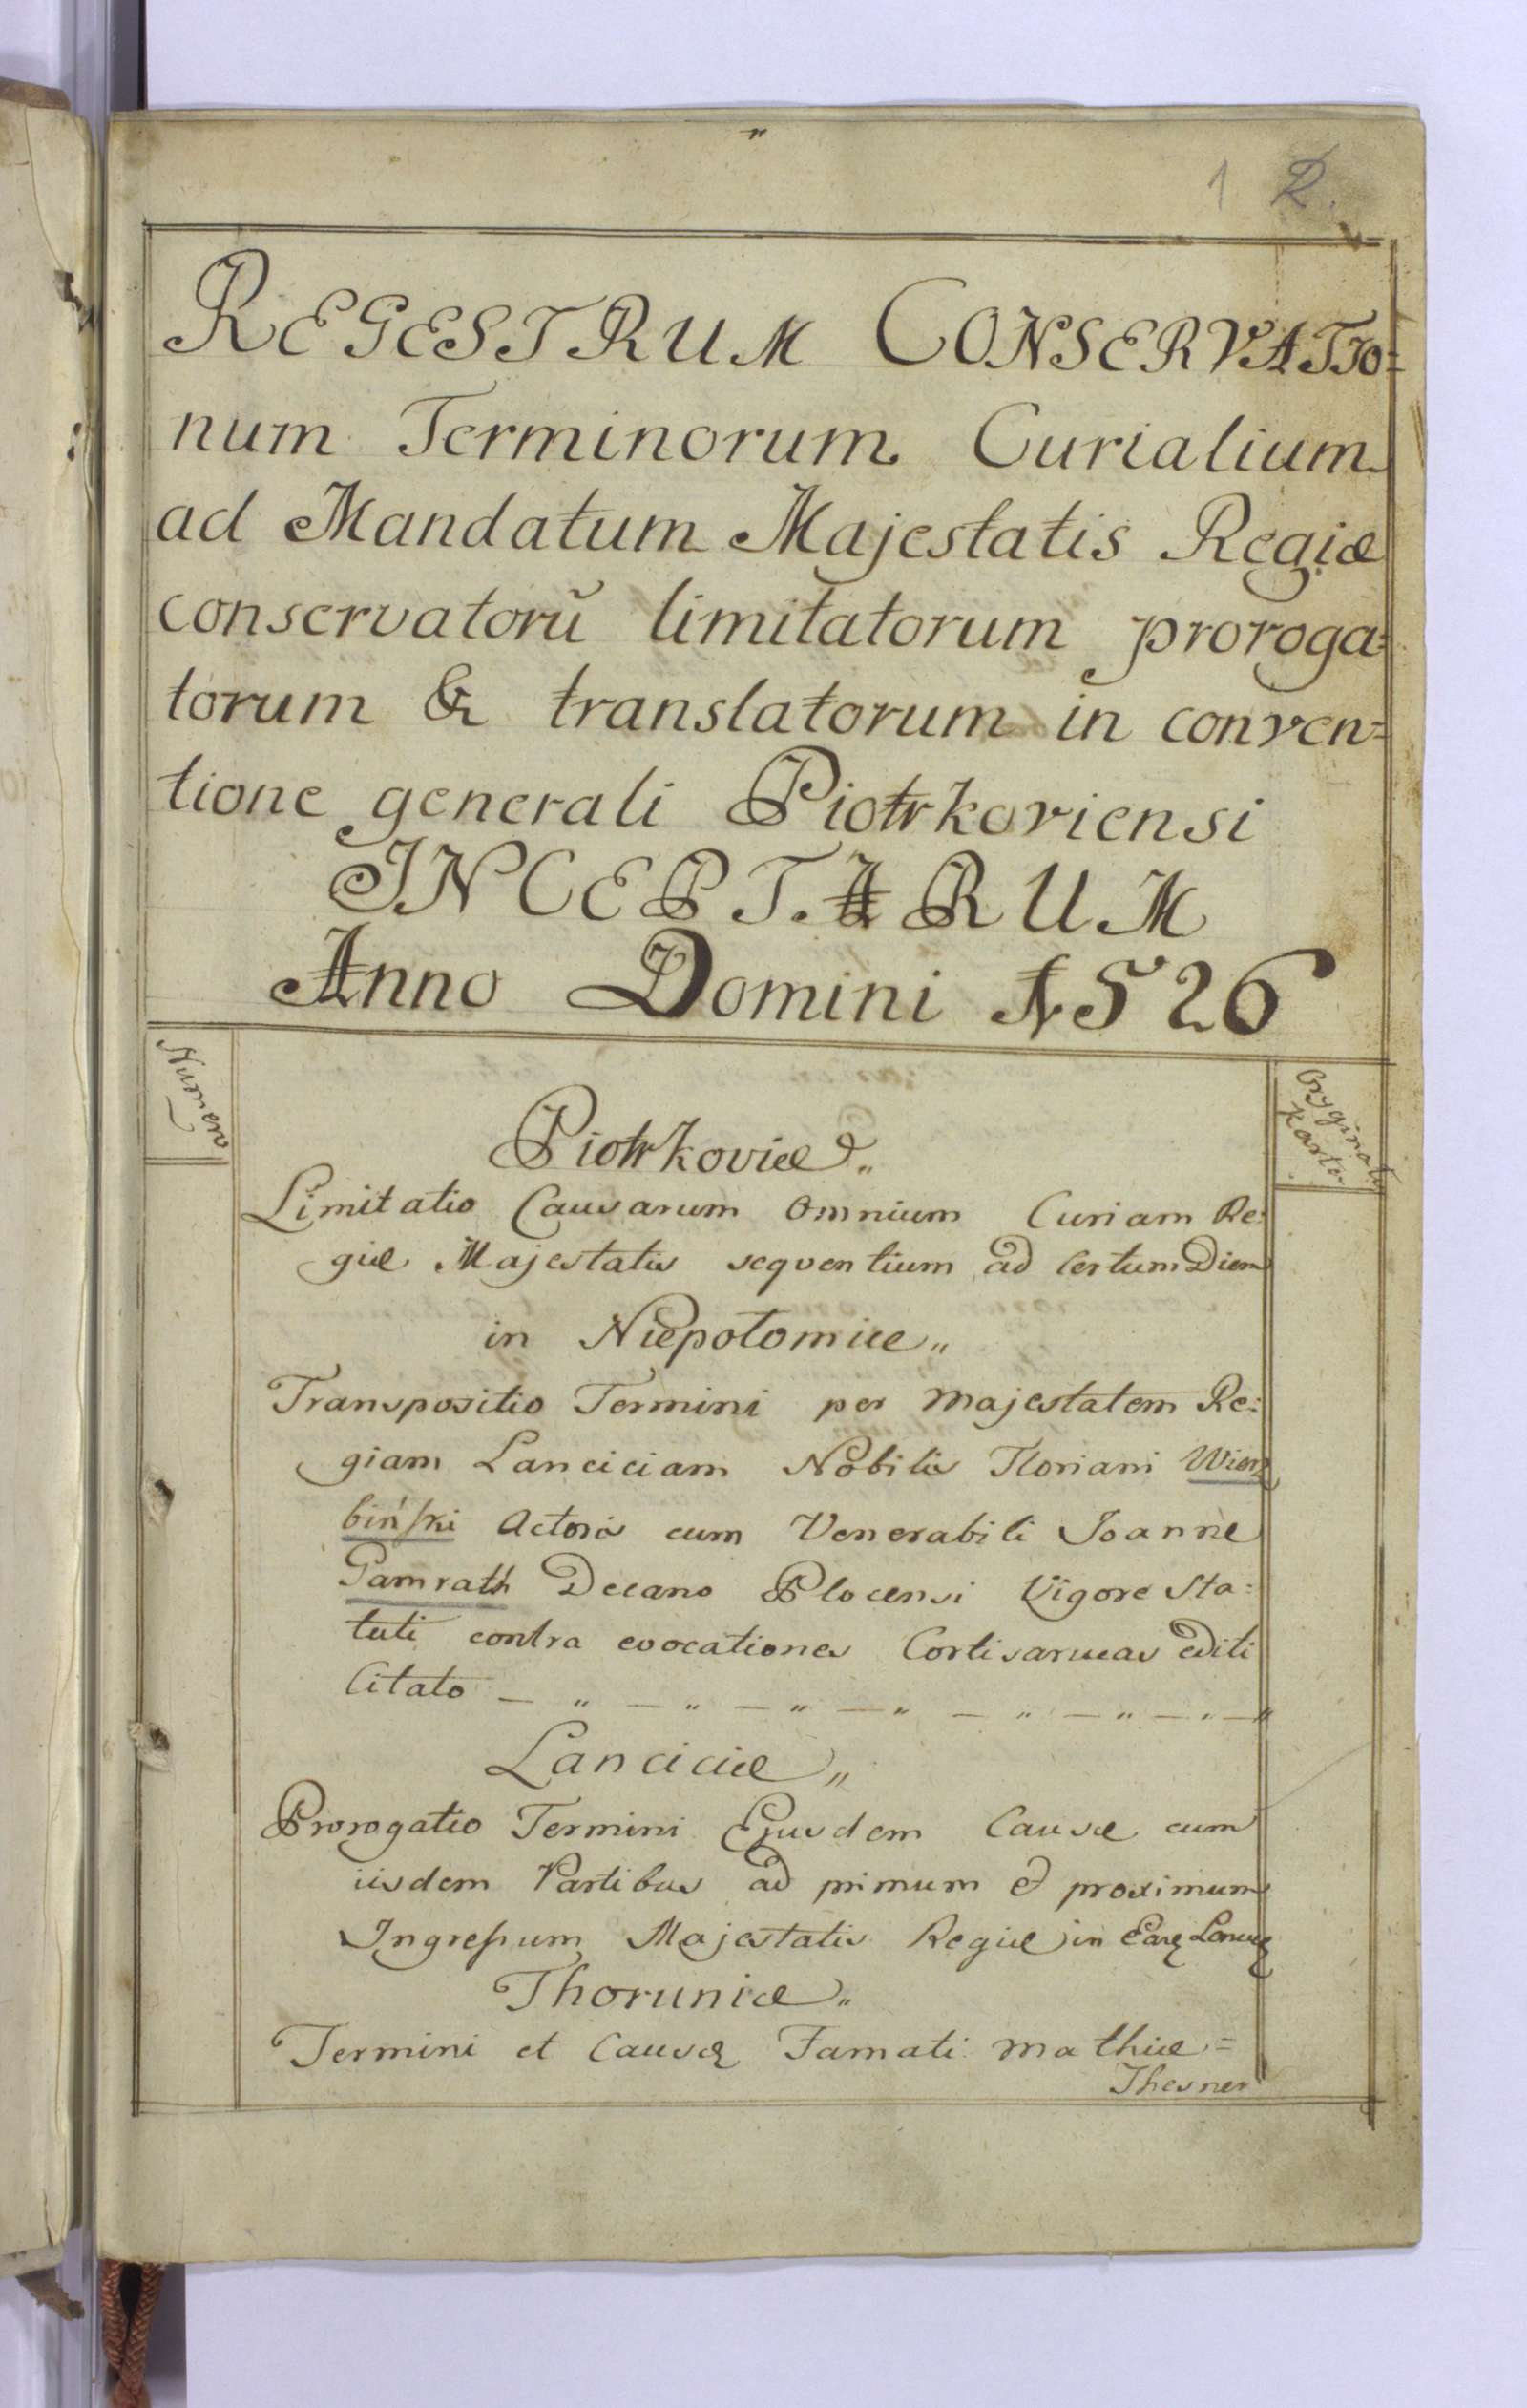 1 2.
REGESTRUM CONSERVATIO=
num Terminorum Curialium
ad Mandatum Majestatis Regiæ
conservatorũ limitatorum proroga=
torum & translatorum in conven=
tione generali Piotrkoviensi
INCEPTARUM
Anno Domini 1526
Numero
Oryginału
Karta
Piotrkoviæ„
Limitatio Causarum Omnium Curiam Re:
giæ Majestatis sequentium ad certum Diem
in Niepołomice„
Transpositio Termini per Majestatem Re:
giam Lanciciam Nobilis Floriani Wierz
biński Actoris cum Venerabili Joanne
Gamrath Decano Plocensi Vigore Sta:
tuti contra evocationes Cortisanicas editi
Citato — „ — „ — „ — „ — „ — „ — „ — „
Lanciciæ„
Prorogatio Termini Ejusdem Causæ cum
iisdem Partibus ad primum & proximum
Ingressum Majestatis Regiæ in
Thoruniæ„
Termini et Causæ Famati Mathiæ =
Thesner